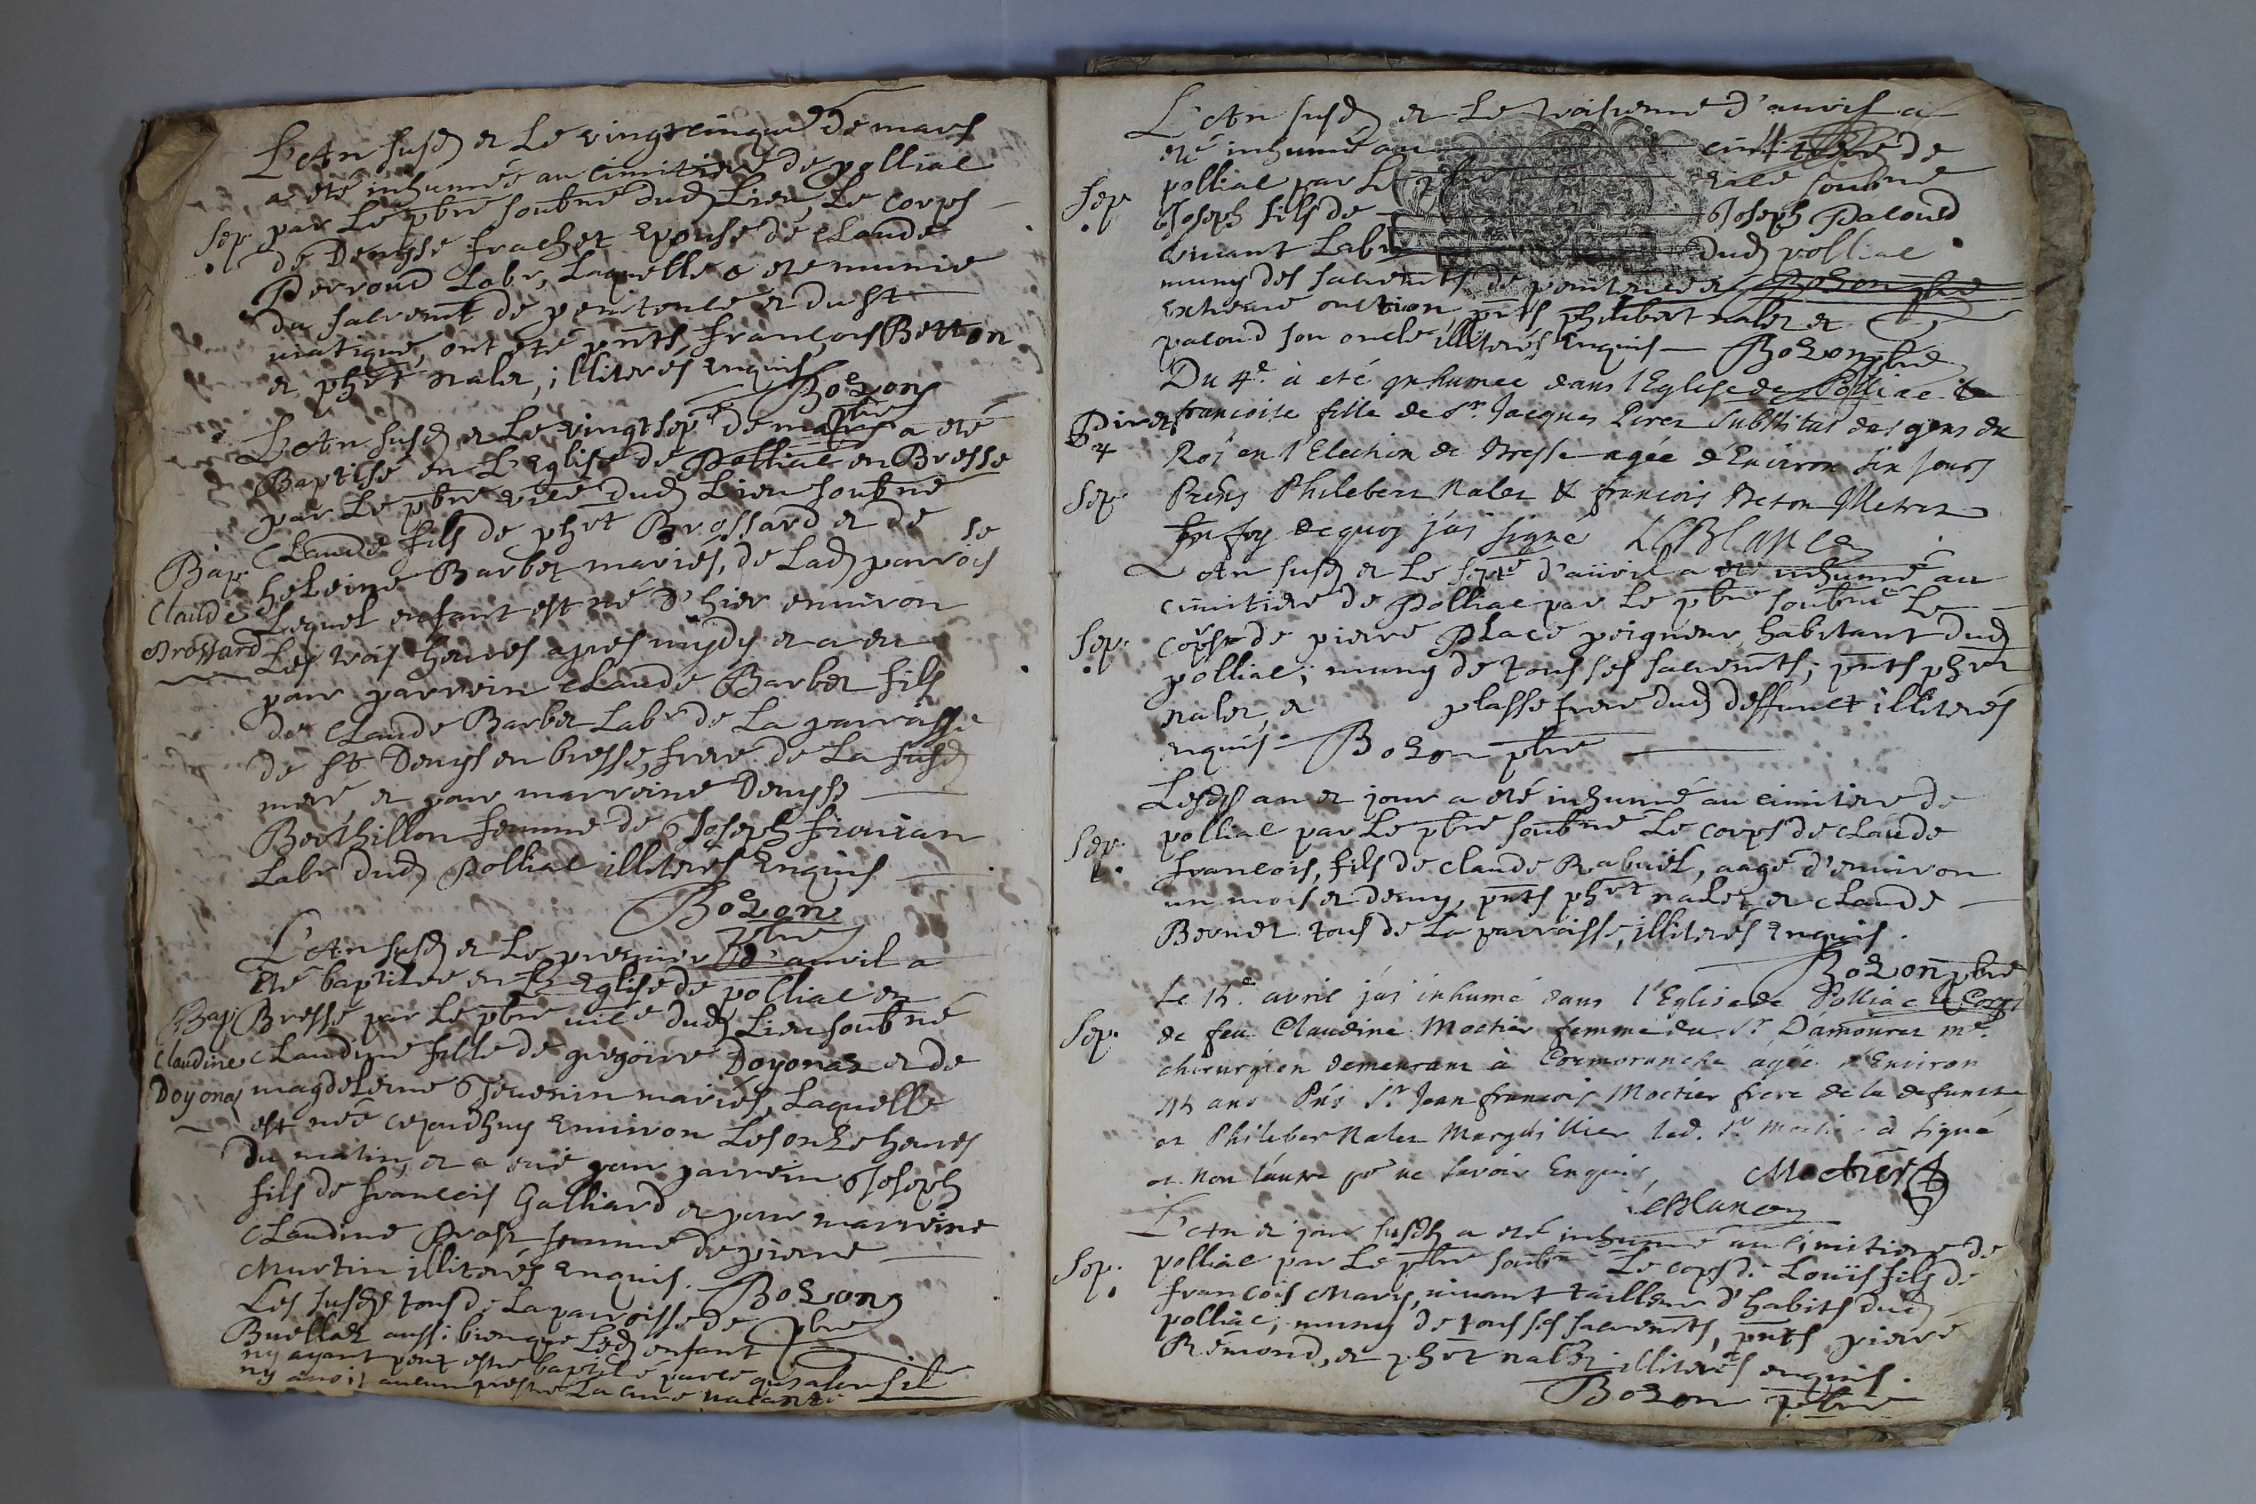 L'An susd et Le vingtcinque de mars
a eté inhumée au cimitiere de polliac
par Le pbre soubné dud Lieu Le Corps
Sep. de Denyse frachet epouse de Claude
Perroud Labr, Laquelle a ete munie
du sacremt de penitence et du st
viatique, ont été pnts, francois Betton
et phbt nalet, illiterés enquis
Bozon
pbre
L'An susd et Le vingt sept de mars a été
Baptisé en L'Eglise de Polliac en Bresse
par Le pbre vicé dud Lieu soubné
Claude fils de phbt Brossard et de
Bap. heleine Barbet mariés, de Lad parrois
se
Claude Lequel enfant est né d'hier environ
Brossard Les trois heures apres midy et a eu
pour parrein Claude Barbet fils
de Claude Barbet Labr de La parroisse
de st Denys en bresse, frere de La susd
mere, et pour marreine Denyse
Berthillon femme de Joseph
Labr dud Polliac illiterés Enquis
Bozon
pbre
L'An susd et Le premier d'avril a
été baptisée en L'Eglise de polliac en
Bap. Bresse par Le pbre vicé dud Lieu soubné
Claudine Claudine fille de gregoire Doyonas et de
Doyonas magdeleine Thevenin mariés, Laquelle
est née cejourdhuy environ Les onze heures
du matin, et a eu pour parrein Joseph
fils de francois Galliard et pour marreine
Claudine Prost femme de pierre
Martin illiterés enquis. Bozon
pbre
Les susds tous de La parroisse de
Buellas aussi bien que Led enfant
ny ayant peut estre baptisé parce qu'alors il
ny avoit aucun prestre La cure vacante
L'An susd et Le troisieme d'avril a
eté inhumé au cimitiere de
Sep. polliac par Le pbre vicé soubné
Joseph fils de Joseph Pacoud
vivant Labr dud polliac
muny des sacremts de penitence et
extreme onction pnts philibert nalet et
pacoud son oncle illiterés enquis Bozon pbre
Du 4e. à eté inhumee dans l'Eglise de Polliac
Piret francoise fille de Sr. Jacques Piret Substitut des gens du
4
Roi en l'Election de Bresse agée d'Environ six jours
Sep. Préns Philebert Nalet & francois Beton Illetrez
En foy de quoy j'ai signé LeBlanc
L'An susd et Le septe d'avril a eté inhumé au
cimitiere de Polliac par Le pbre soubné Le
Sep. corps de pierre Place peigneur habitant dud
polliac, muny de tous ses sacremts; pnts phbt
nalet, et plasse frere dud deffunct illiterés
enquis Bozon pbre
Lesds an et jour a eté inhumé au cimitiere de
polliac par Le pbre soubné Le corps de Claude
Sep. francois, fils de Claude Rabuel, aagé d'environ
un mois et demy, pnts phbt nalet et Claude
Bernet tous de La parroisse, illiterés enquis.
Bozon pbre
Le 14e. avril j'ai inhumé dans l'Eglise de Polliac le Corps
Sep. de feu Claudine Moctier femme du Sr. Damouret me.
chirurgien demeurant à Cormoranche agée d'Environ
ans Prés Sr. Jean francois Moctier frere de la defuncte
et Philebert Nalet Marguillier led. Sr Moctier à signé
et non l'autre pr ne savoir Enquis, Moctier
LeBlanc
L'An et jour susds a eté inhumé au cimitiere de
polliac par Le pbre soubné Le corps de Louis fils de
Sep. francois Mary, vivant tailleur d'habits dud
polliac, muny de tous ses sacremts, pnts pierre
Rémond, et phbt nalet illiterés enquis.
Bozon pbre